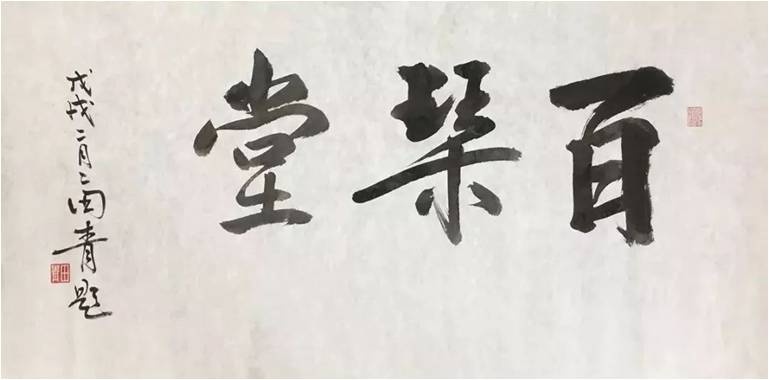 百琹堂
戊戌二月二田青题